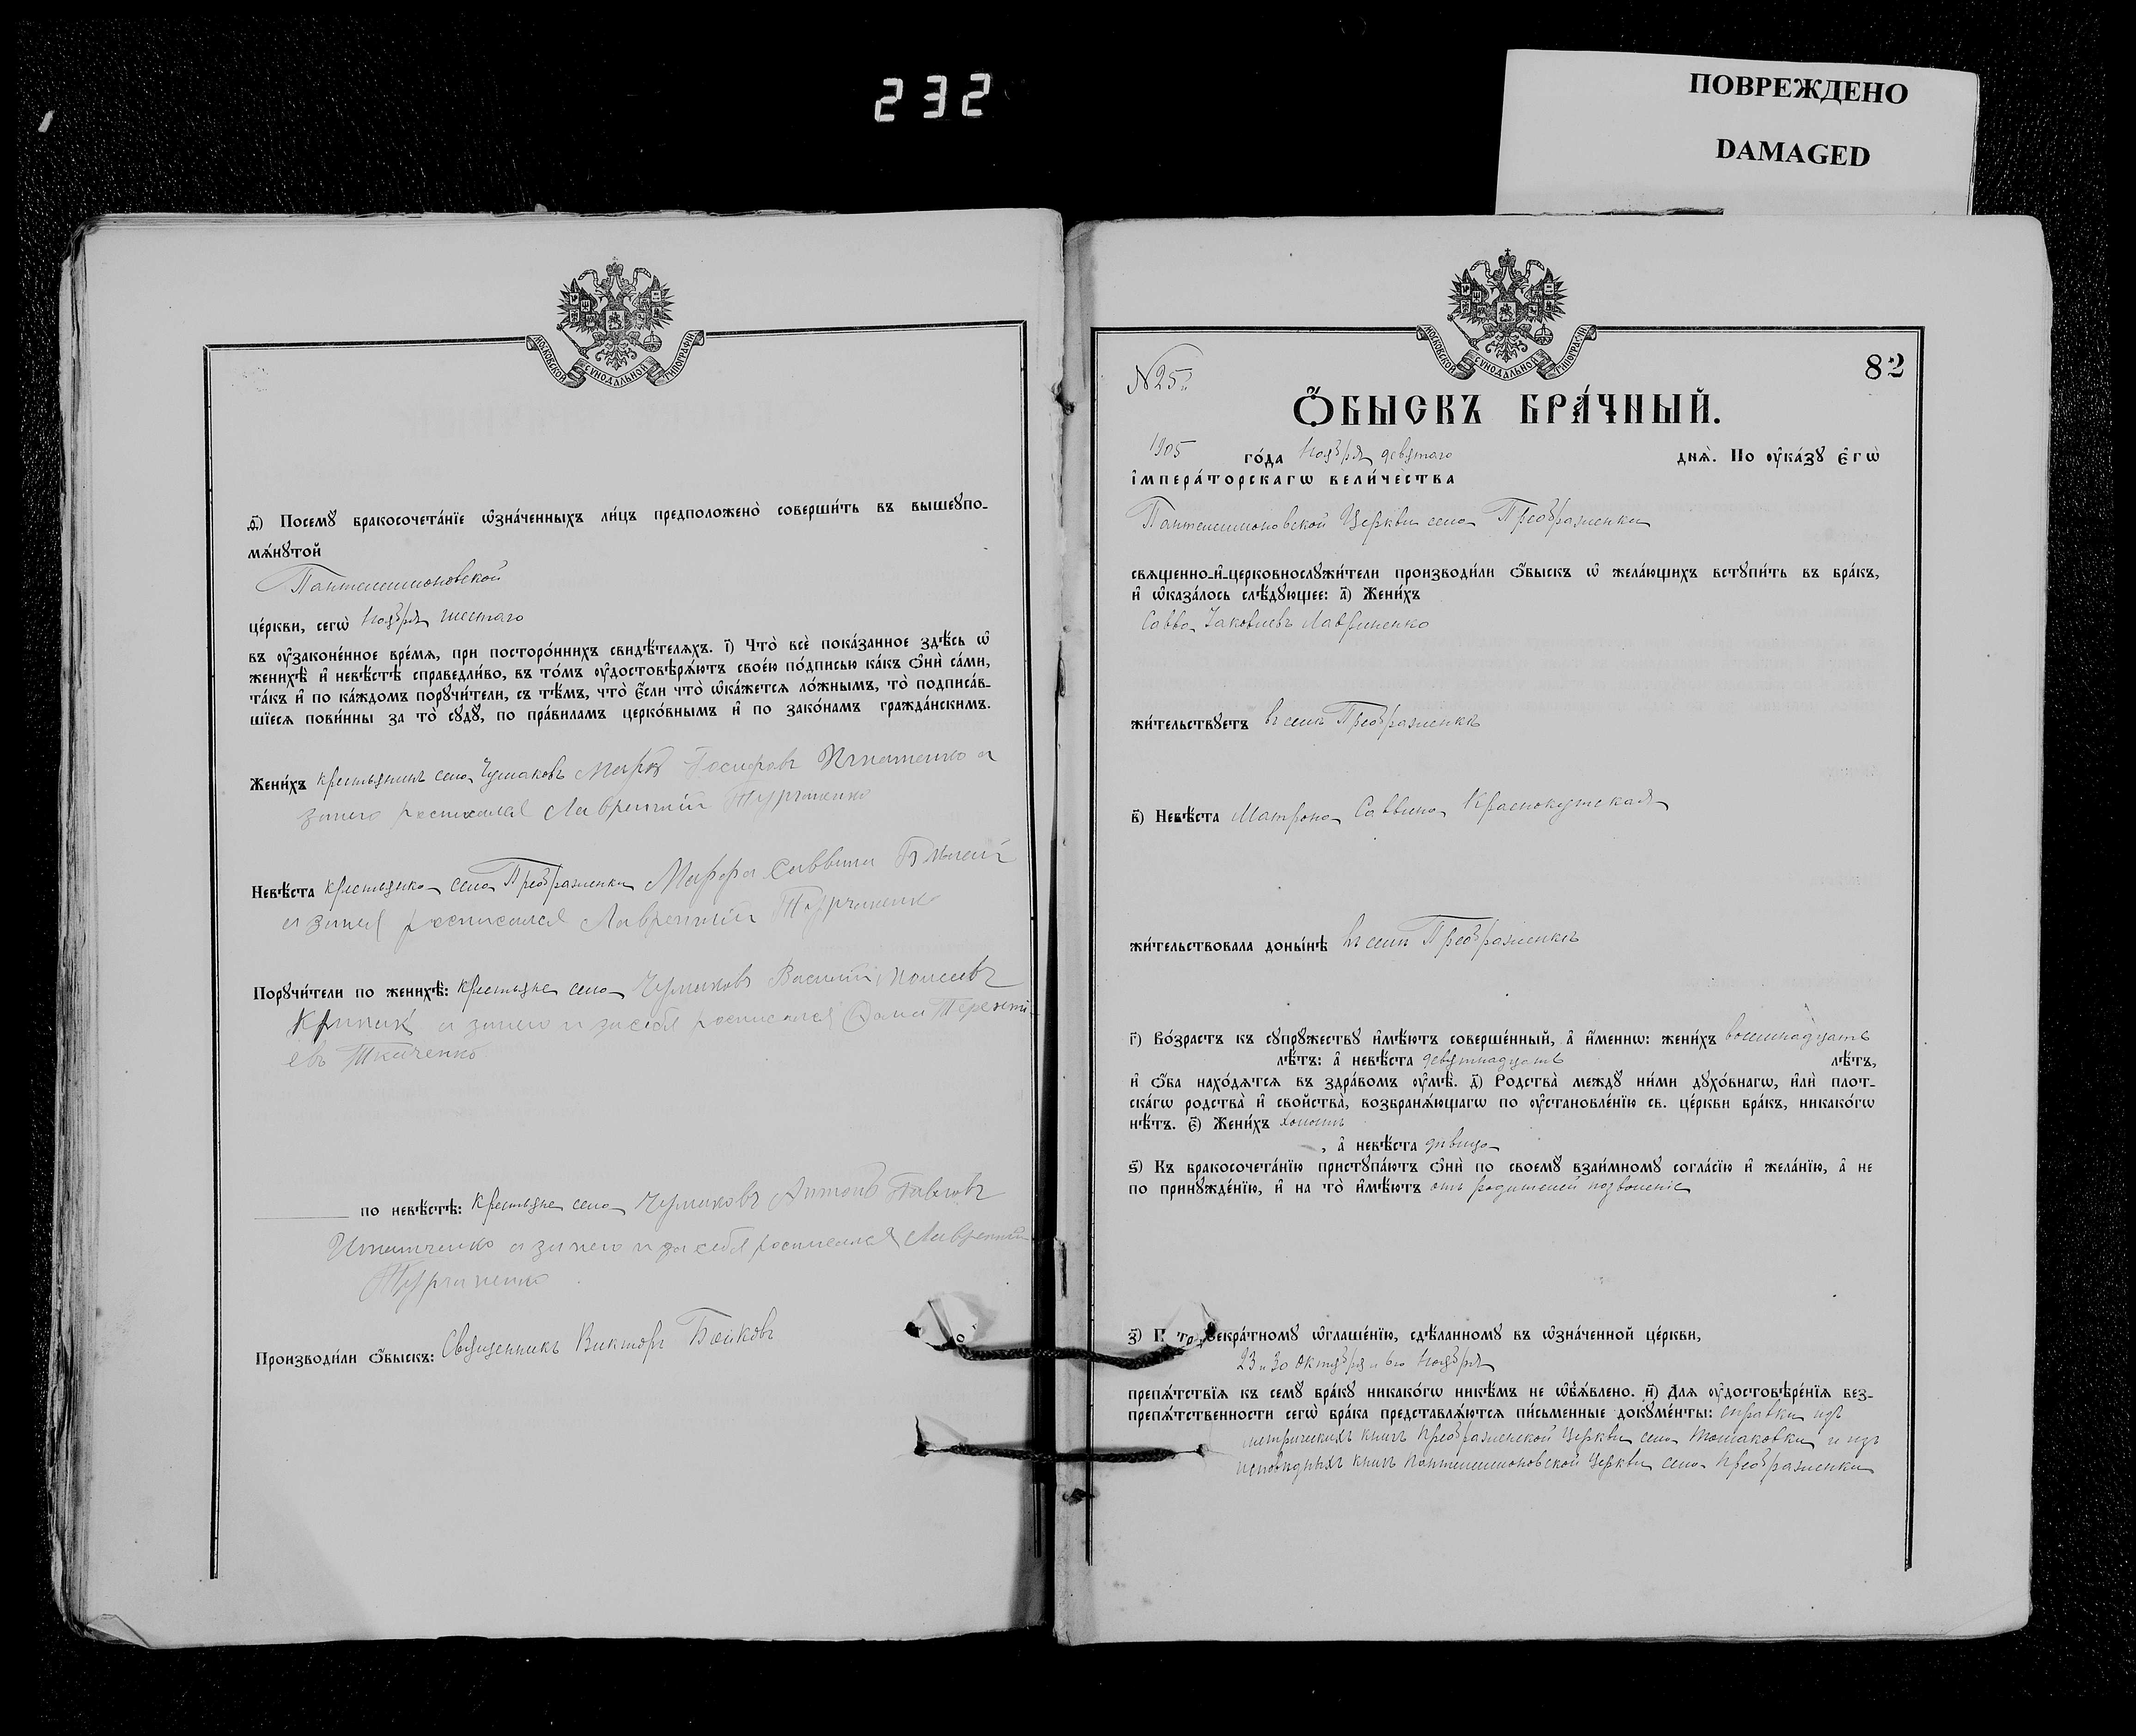 232
ПОВРЕЖДЕНО
DAMAGED
МОСКОВСКОЙ СѴНОДАЛЬНОЙ ТИПОГРАФІИ
ѳ҃) Посемꙋ бракосочета́нїе ѡ҆зна́ченныхъ ли́цъ предположено̀ соверши́ть въ вышеꙋпо-
мѧ́нꙋтой
Пантелеимоновской
це́ркви, сегѡ̀ Ноября шестаго
въ ᲂу҆законе́нное вре́мѧ, при посторо́ннихъ свидѣ́телѧхъ. і҃) Что̀ всѐ пока́занное здѣ́сь ѡ҆
женихѣ̀ и҆ невѣ́стѣ справедли́во, въ то́мъ ᲂу҆достовѣрѧ́ютъ свое́ю по́дписью ка́къ ѻ҆нѝ са́ми,
та́къ и҆ по ка́ждомъ порꙋчи́тели, съ тѣ́мъ, что̀ є҆́сли что̀ ѡ҆ка́жетсѧ ло́жнымъ, то̀ подписа́в-
шїесѧ пови́нны за то̀ сꙋдꙋ̀, по пра́виламъ церко́внымъ и҆ по зако́намъ гражда́нскимъ.
Жени́хъ крестьянинъ села Чумаковъ Марко Іосифовъ Игнатенко а
занего росписался Лаврентій
Невѣ́ста крестьянка села Преображенки Марфа Саввина
а занея росписался Лаврентій
Порꙋчи́тели по женихѣ̀: крестьяне села Чумаковъ Василій Моисеевъ
а занего и засебя росписался Терентi-
евъ Ткаченко
по невѣ́стѣ: крестьяне села Чумаковъ Антонъ Павловъ
Игнатченко а занего и засебя росписался Лаврентій
Производи́ли ѻ҆́быскъ: Священникъ Викторъ Бойковъ
МОСКОВСКОЙ СѴНОДАЛЬНОЙ ТИПОГРАФІИ
82
N 25
Ѻ҆́БЫСКЪ БРА́ЧНЫЙ.
1905 го́да Ноября девятаго днѧ̀. По ᲂу҆ка́зꙋ є҆гѡ̀
і҆мпера́торскагѡ вели́чества
Пантелеимоновской Церкви села Преображенки
свѧщенно-и҆-церковнослꙋжи́тели производи́ли ѻ҆́быскъ ѡ҆ жела́ющихъ встꙋпи́ть въ бра́къ,
и҆ ѡ҆каза́лось слѣ́дꙋющее: а҃) Жени́хъ
Савва Іаковлевъ Лавриненко
жи́тельствꙋетъ въ селѣ Преображенкѣ
в҃) Невѣ́ста Матрона Саввина Краснокутская
жи́тельствовала доны́нѣ въ селѣ Преображенкѣ
г҃) Во́зрастъ къ сꙋпрꙋ́жествꙋ и҆мѣ́ютъ соверше́нный, а҆ и҆́менно: жени́хъ восемнадцать
лѣ́тъ: а҆ невѣ́ста девятнадцать лѣ́тъ,
и҆ ѻ҆́ба нахо́дѧтсѧ въ здра́вомъ ᲂу҆мѣ̀. д҃) Родства̀ междꙋ̀ ни́ми дꙋхо́внагѡ, и҆лѝ плот-
ска́гѡ родства̀ и҆ свойства̀, возбранѧ́ющагѡ по ᲂу҆становле́нїю св. це́ркви бра́къ, никако́гѡ
нѣ́тъ. є҃) Жени́хъ холостъ
, а҆ невѣ́ста дѣвица
ѕ҃) Къ бракосочета́нїю пристꙋпа́ютъ ѻ҆нѝ по своемꙋ̀ взаи́мномꙋ согла́сїю и҆ жела́нїю, а҆ не
по принꙋжде́нїю, и҆ на то̀ и҆мѣ́ютъ отъ родителей позволеніе
з҃) П тр екра́тномꙋ ѡ҆глаше́нїю, сдѣ́ланномꙋ въ ѡ҆зна́ченной це́ркви,
23 и 30 Октября и 6го Ноября
препѧ́тствїѧ къ семꙋ̀ бра́кꙋ никако́гѡ никѣ́мъ не ѡ҆б̾ѧ́влено. и҃) Длѧ ᲂу҆достовѣре́нїѧ без-
препѧ́тственности сегѡ̀ бра́ка представлѧ́ютсѧ пи́сьменные докꙋме́нты: справки изъ
метрическихъ книгъ Преображенской Церкви села Томаковки и изъ
исповѣдныхъ книгъ Пантелеимоновской Церкви села Преображенки